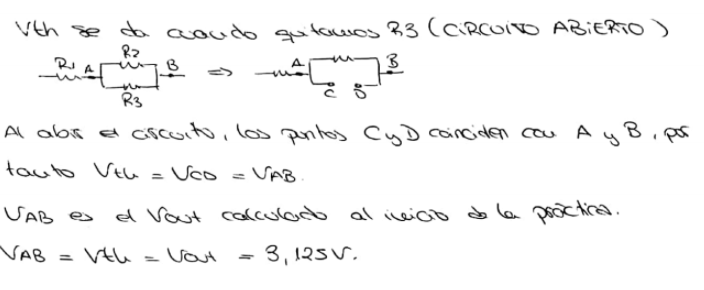 Vth se da cuando quitamos R3 (CIRCUITO ABIERTO)
R1 A R2 B R3 => A B C D
Al abrir el circuito, los puntos C y D coinciden con A y B, por
tanto Vth = VCD = VAB.
VAB es el Vout calculado al inicio de la práctica.
VAB = Vth = Vout = 3,125V.